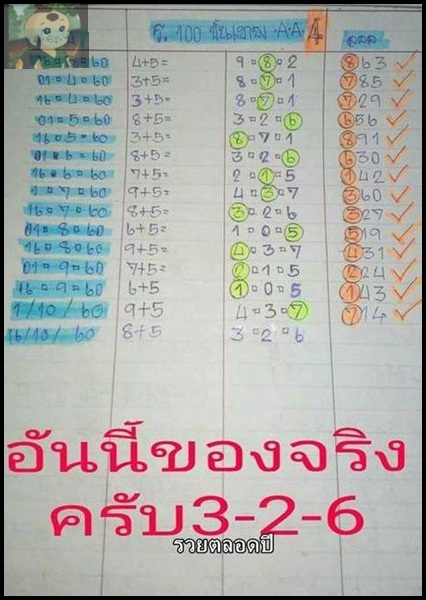 ร. 100 ชั้นเขาฆ A·A 4 ลลล
16=3=60 4+5= 9=8=2 863 ✓
01=4=60 3+5= 8=7=1 785 ✓
16=4=60 3+5= 8=7=1 729 ✓
01=5=60 8+5= 3=2=6 656 ✓
16=5=60 3+5= 8=7=1 891 ✓
01=6=60 8+5= 3=2=6 630 ✓
16=6=60 7+5= 2=1=5 142 ✓
1=7=60 9+5= 4=3=7 360 ✓
16=7=60 8+5= 3=2=6 327 ✓
01=8=60 6+5= 1=0=5 519 ✓
16=8=60 9+5= 4=3=7 431 ✓
01=9=60 7+5= 2=1=5 224 ✓
16=9=60 6+5 1=0=5 143 ✓
1/10/60 9+5 4=3=7 714 ✓
16/10/60 8+5 3=2=6
อันนี้ของจริง
ครับ3-2-6
รวยตลอดปี